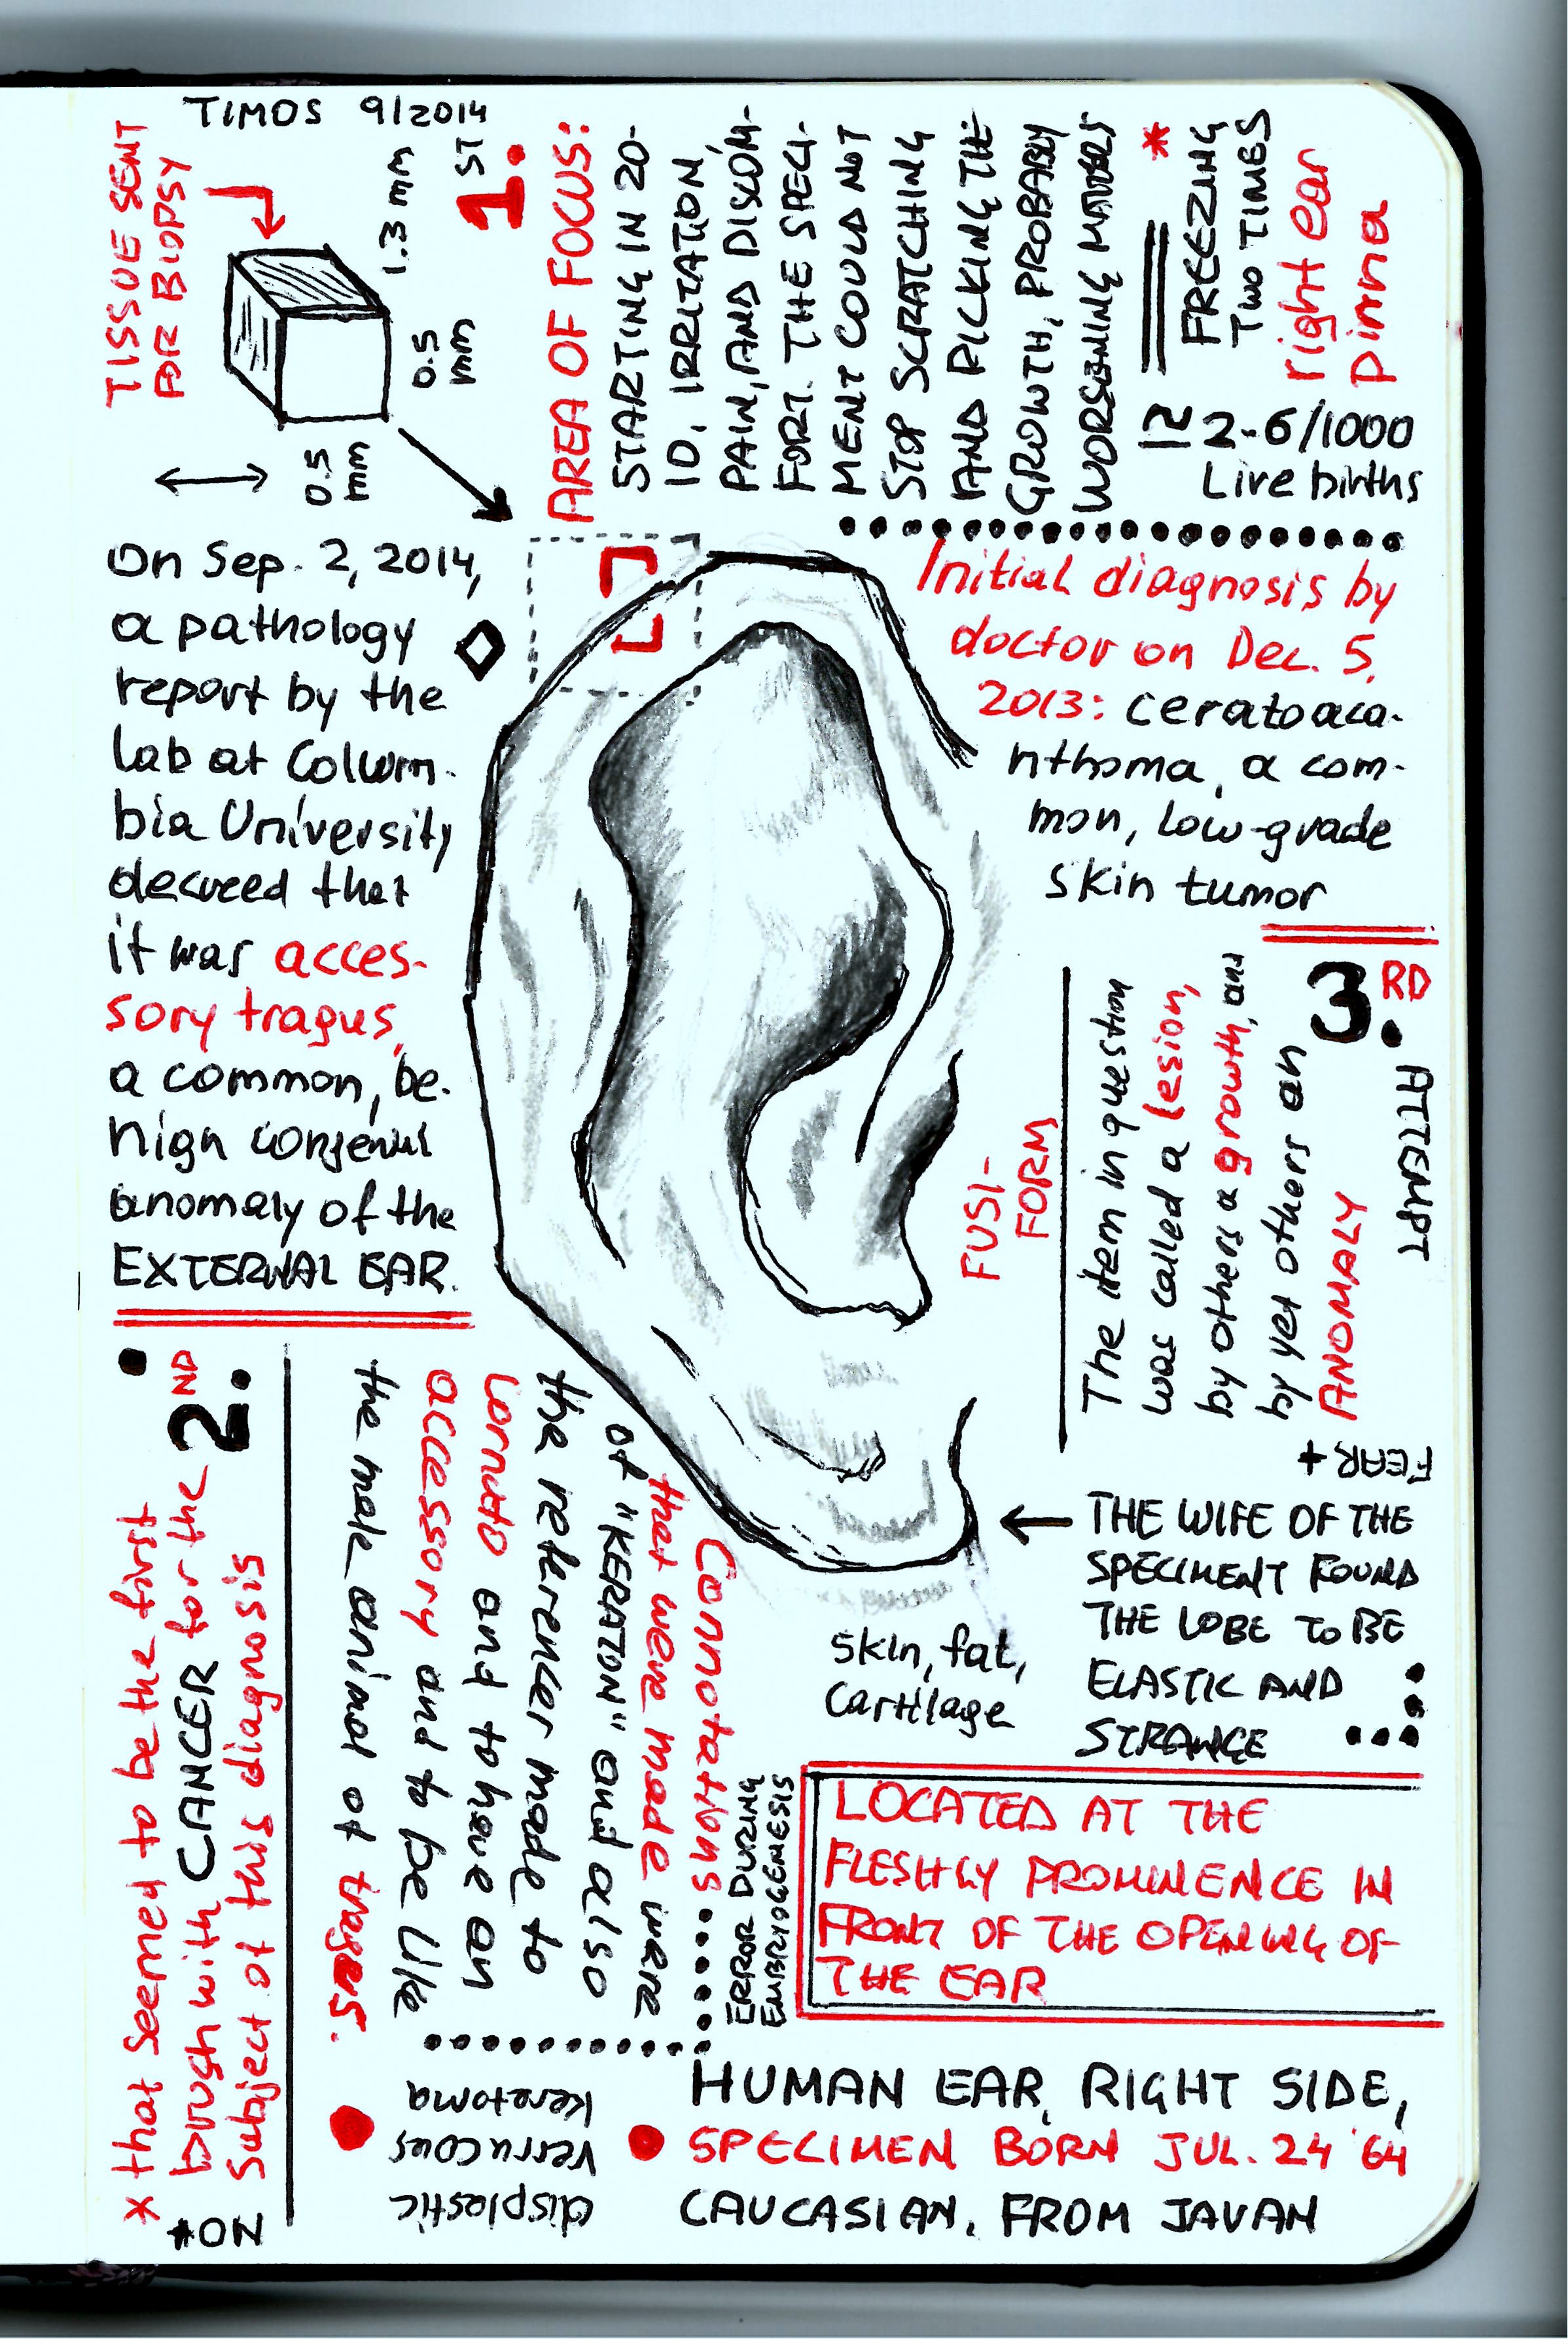 TIMOS 9/2014
TISSUE SENT
FOR BIOPSY
1.3 mm
0.5
mm
0.5
mm
1. ST
AREA OF FOCUS:
STARTING IN 20-
10, IRRITATION,
PAIN, AND DISCOM-
FORT. THE SPECI-
MENT COULD NOT
STOP SCRATCHING
AND PICKING THE
GROWTH, PROBABLY
WORSENING MATTERS
*
FREEZING
TWO TIMES
right ear
pinna
≃ 2-6/1000
Live births
On Sep. 2, 2014,
a pathology
report by the
lab at Colum-
bia University
decreed that
it was acces-
sory tragus,
a common, be-
nign congenital
anomaly of the
EXTERNAL EAR.
Initial diagnosis by
doctor on Dec. 5,
2013: ceratoaca-
nthoma, a com-
mon, low-grade
skin tumor
3. RD
ATTEMPT
FUSI-
FORM
The item in question
was called a lesion,
by others a growth, and
by yet others an
ANOMALY
FEAR +
THE WIFE OF THE
SPECIMENT FOUND
THE LOBE TO BE
ELASTIC AND
STRANGE
skin, fat,
cartilage
2. ND
* that seemed to be the first
brush with CANCER for the
subject of this diagnosis
NO*
Connotations
that were made were
of "KERATON" and also
the references made to
cornuto and to have an
accessory and to be like
the male animal of trages.
ERROR DURING
EMBRIOGENESIS
LOCATED AT THE
FLESHLY PROMINENCE IN
FRONT OF THE OPENING OF
THE EAR
displastic
verrucous
keratoma
HUMAN EAR, RIGHT SIDE,
SPECIMEN BORN JUL. 24 '64
CAUCASIAN. FROM JAVAN